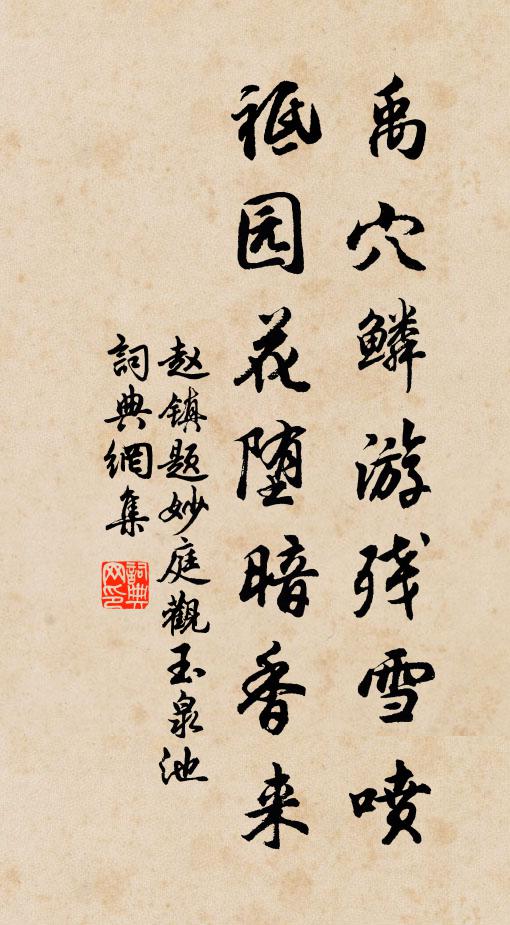 禹穴鳞游残雪喷
祗园花堕暗香来
赵镇题妙庭觀玉泉池
詞典網集
詞典网印